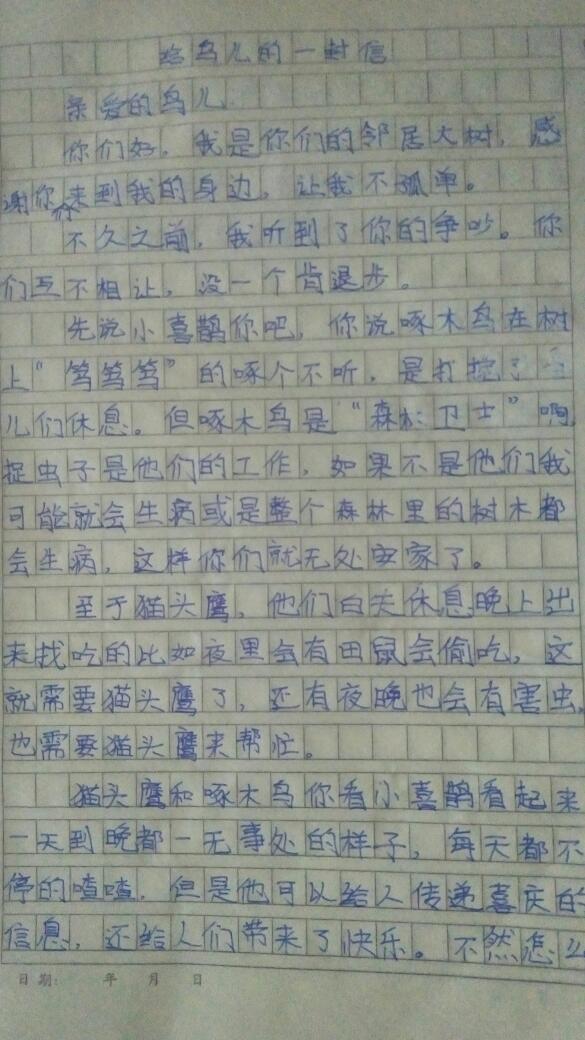 给鸟儿的一封信
亲爱的鸟儿
你们好，我是你们的邻居大树，感
谢你们来到我的身边，让我不孤单。
不久之前，我听到了你的争吵。你
们互不相让，没一个肯退步。
先说小喜鹊你吧，你说啄木鸟在树
上“笃笃笃”的啄个不听，是打搅了
儿们休息。但啄木鸟是“森林卫士”啊
捉虫子是他们的工作，如果不是他们我
可能就会生病或是整个森林里的树木都
会生病，这样你们就无处安家了。
至于猫头鹰，他们白天休息晚上出
来找吃的比如夜里会有田鼠会偷吃，这
就需要猫头鹰了，还有夜晚也会有害虫，
也需要猫头鹰来帮忙。
猫头鹰和啄木鸟你看小喜鹊看起来
一天到晚都一无事处的样子，每天都不
停的喳喳，但是他可以给人传递喜庆的
信息，还给人们带来了快乐。不然怎么
日期： 年 月 日